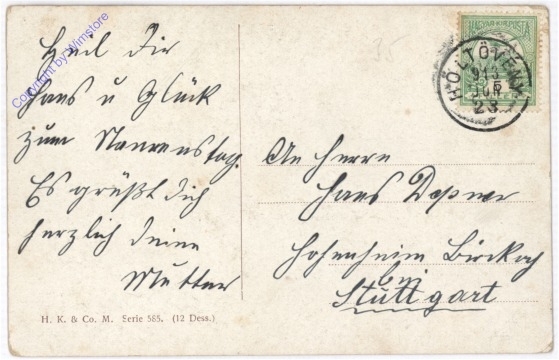 Heil dir
Hans u Glück
zum Namenstag.
Es grüßt dich
herzlich deine
Mutter
H. K. & Co. M. Serie 585. (12 Dess.)
MAGYAR KIR. POSTA
HÖLTÖVÉNY
913
JUN
23
An Herrn
Hans Depner
Hohenheim
bei
Stuttgart
35
Copyright by Wimstore